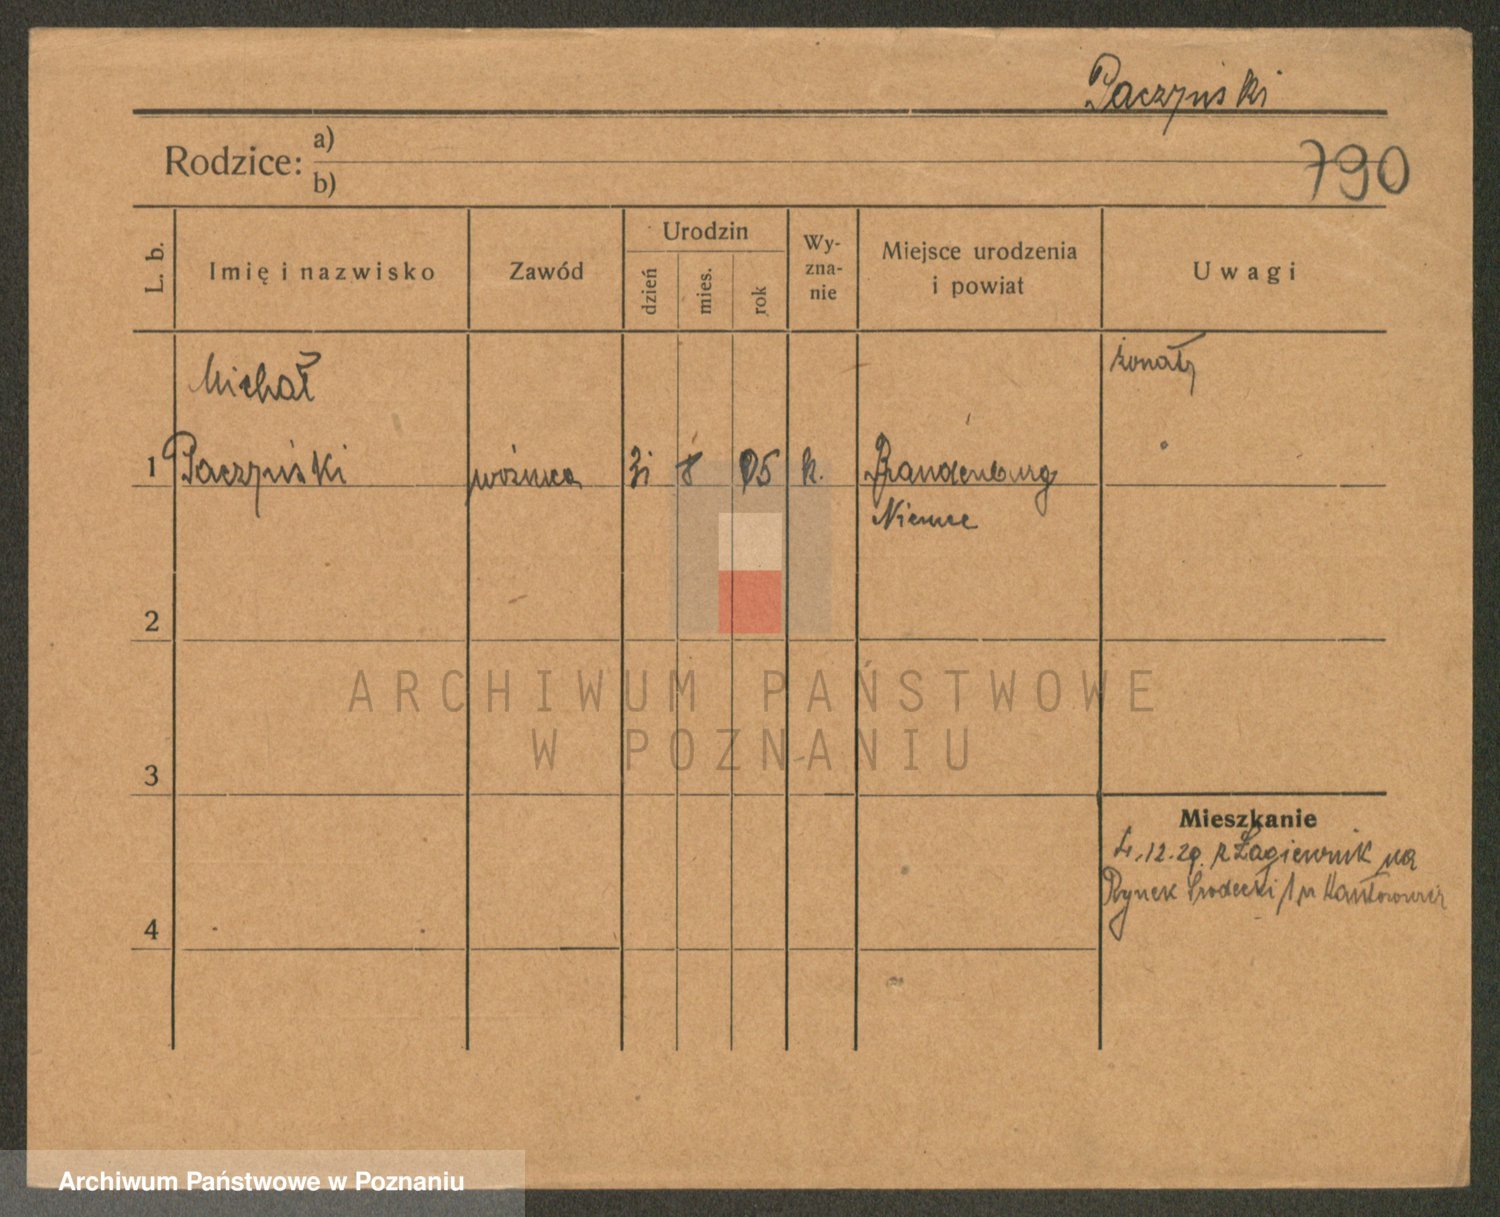 Paczyński
Rodzice: a)
b)
790
L. b.
Imię i nazwisko
Zawód
Urodzin
dzień
mies.
rok
Wy-
zna-
nie
Miejsce urodzenia
i powiat
Uwagi
Michał
żonaty
1 Paczyński woźnica 31 8 05 k. Brandenburg
Niemce
2
3
4
Mieszkanie
4.12.29. z Łagiewnik na
Rynek Środecki 1 u
ARCHIWUM PAŃSTWOWE
W POZNANIU
Archiwum Państwowe w Poznaniu